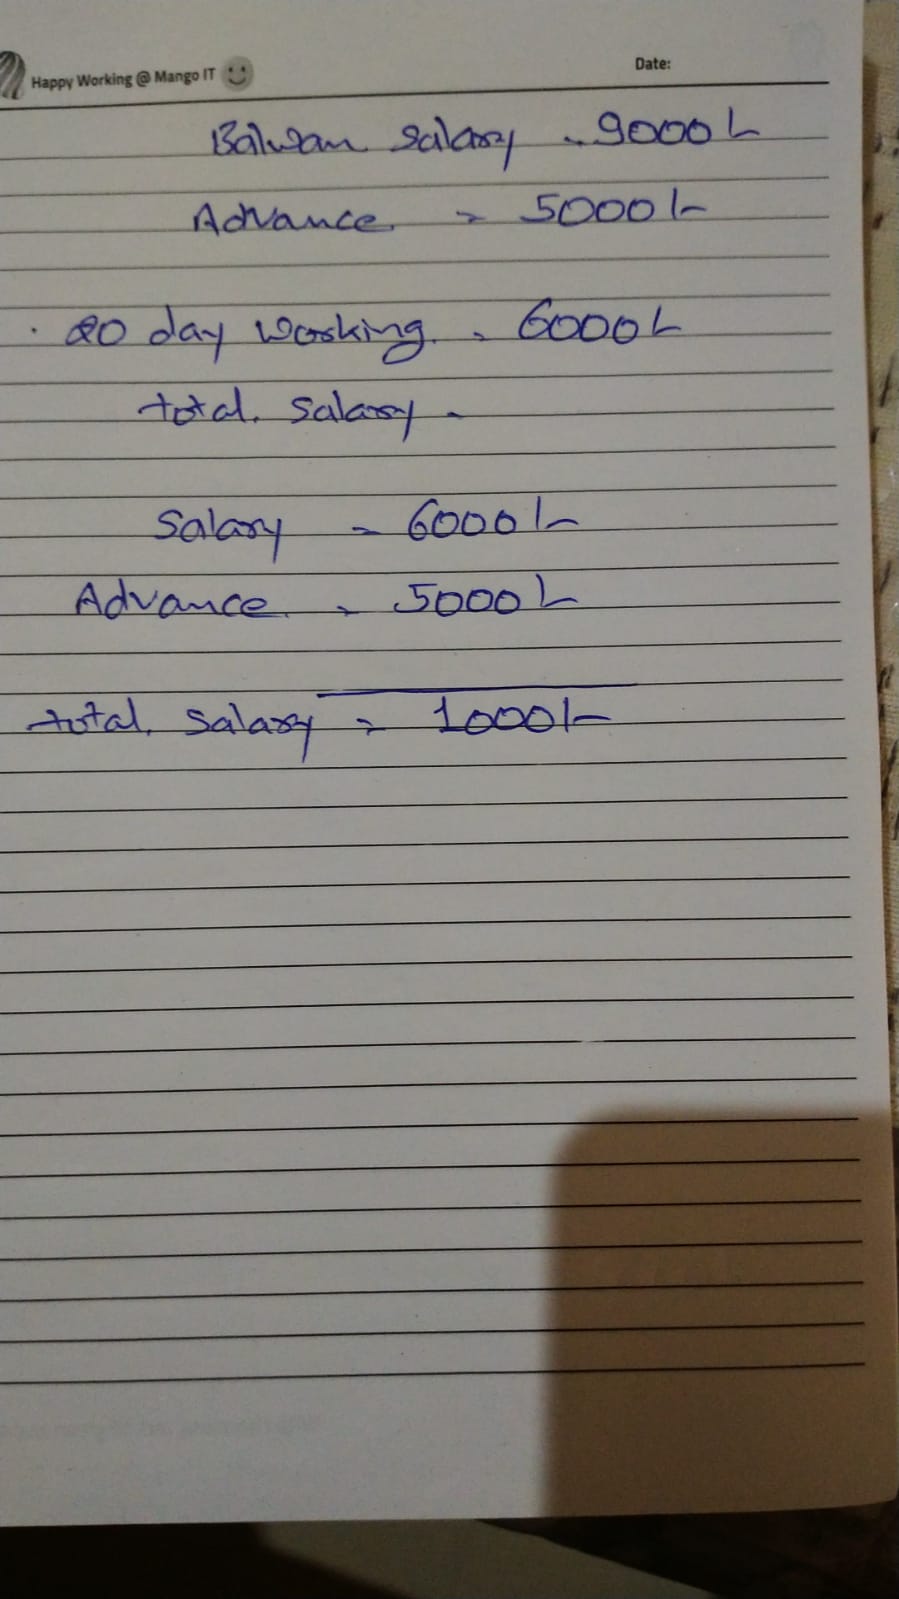 Happy Working @ Mango IT
Date:
Balwan Salary - 9000/-
Advance = 5000/-
20 day Working = 6000/-
total. Salary -
Salary = 6000/-
Advance = 5000/-
total. Salary = 1000/-